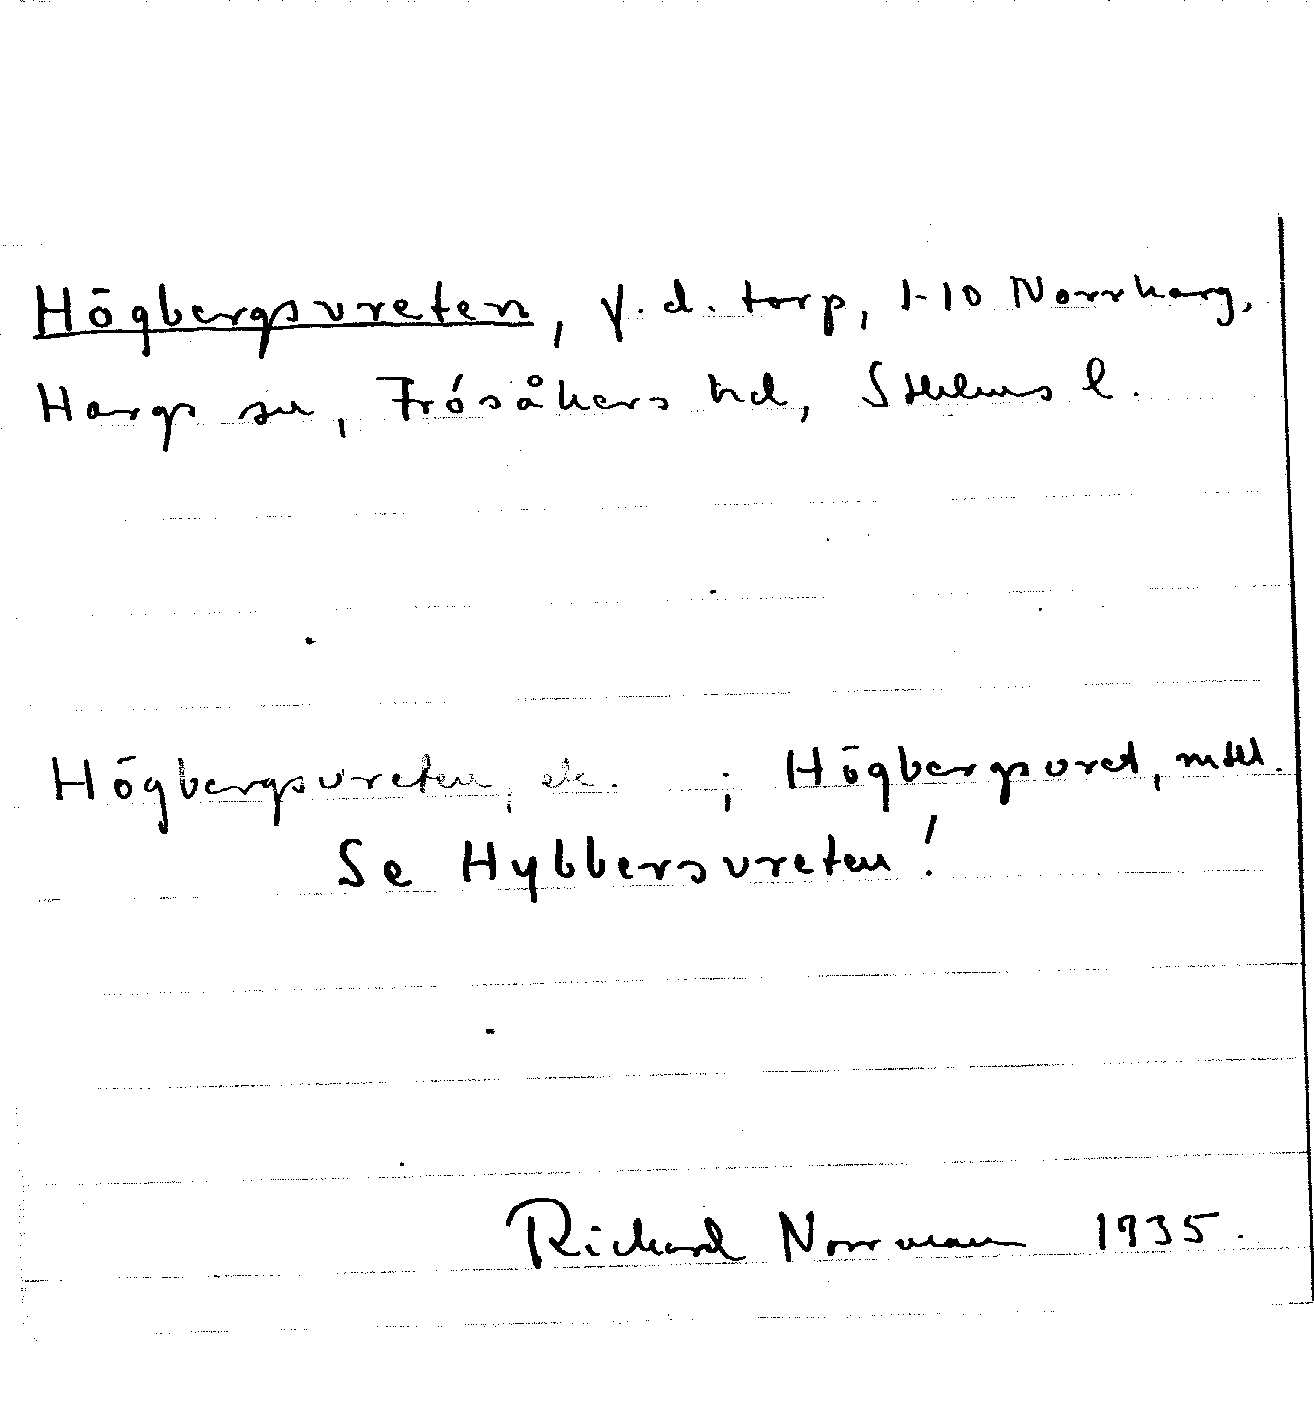 Högbergsvreten, f.d. torp, 1-10 Norrharg,
Hargs sn, Frösåkers hd, Sthlms l.
Högbergsvreten, ek. ; Högbergsvret, mtll.
Se Hybbersvreten!
Richard Norrman 1935.